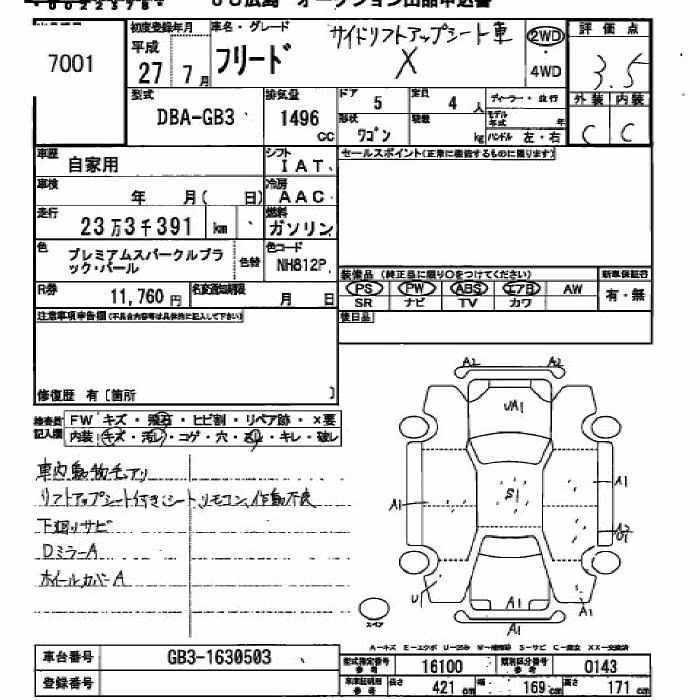 JU広島 オークション出品申込書
7001
初度登録年月 車名・グレード サイドリフトアップシート車 2WD 評価点
平成 27年 7月 フリード X ・ 4WD 3.5
型式 排気量 ドア 5 定員 4人 ディーラー・並行 外装 内装
DBA-GB3 1496 cc 形状 ワゴン 積載 kg モデル年式 年 ハンドル 左・右 C C
車歴 自家用 シフト IAT セールスポイント(正常に機能するものに限ります)
車検 年 月( 日) 冷房 AAC
走行 23万3千391 km 燃料 ガソリン
色 プレミアムスパークルブラック・パール 色替 色コード NH812P
装備品 (純正品に限り○をつけてください) 新車保証書
PS PW ABS エアB AW 有・無
SR ナビ TV カワ
R券 11,760円 名変通知期限 月 日
注意事項申告欄(不具合内容等は具体的に記入して下さい) 後日品
修復歴 有〔箇所 〕
検査員記入欄 FW キズ・飛石・ヒビ割・リペア跡・×要
内装 キズ・汚レ・コゲ・穴・ ・キレ・破レ
車内動物毛アリ
リフトアップシート付き、シートリモコン作動不良
下廻りサビ
DミラーA
ホイールカバーA
A2 A2
UA1
A1 S1 A1
A2
U A1 A1
A1
スペア
A-キズ E-エクボ U-凹み W-補修跡 S-サビ C-腐食 XX-交換済
車台番号 GB3-1630503
登録番号
型式指定番号 参考 16100 類別区分番号 参考 0143
車庫証明用 参考 長さ 421cm 幅 169cm 高さ 171cm